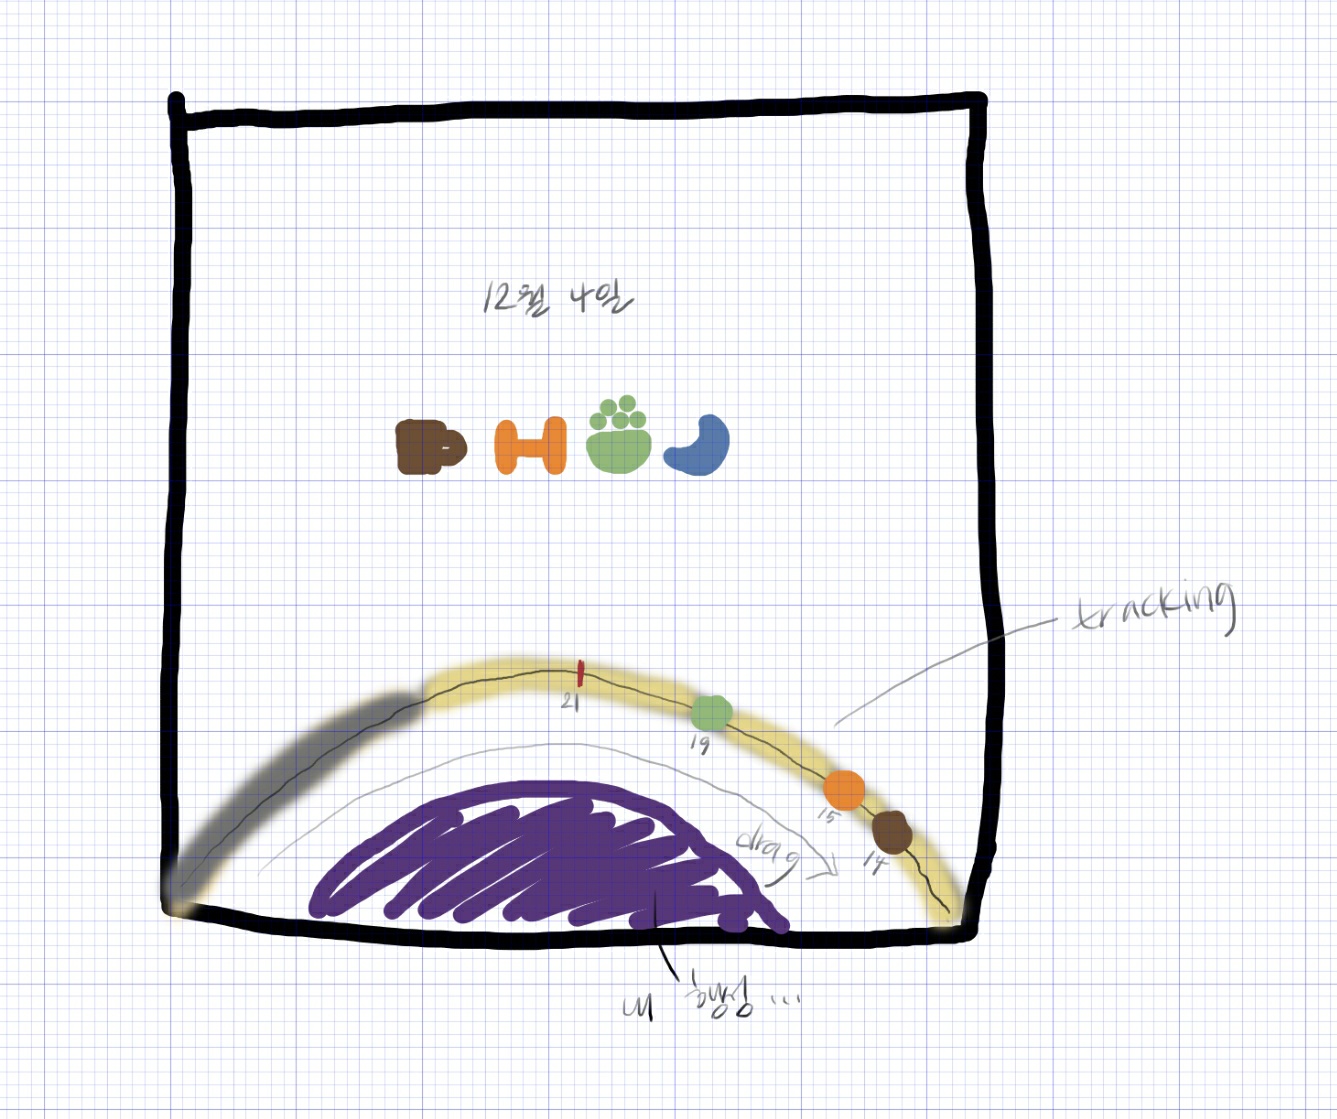 12월 4일
tracking
21
19
15
14
drag
내 행성...